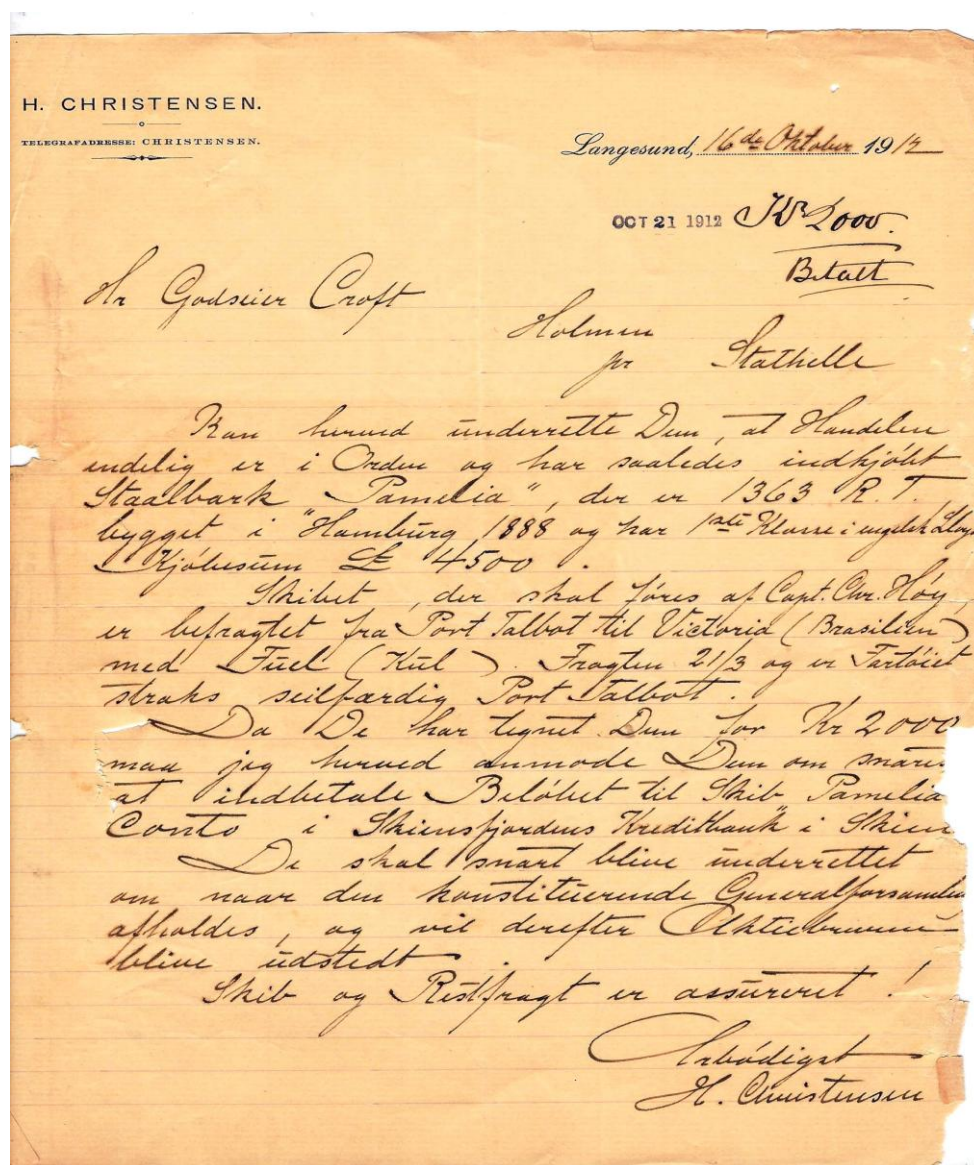 H. CHRISTENSEN.
TELEGRAFADRESSE: CHRISTENSEN.
Langesund, 16de Oktober 1912
OCT 21 1912 Kr 2000.
Betalt
Hr Godseier Croft
Holmen
pr Stathelle
Kan herved underrette Dem, at Handelen
endelig er i Orden og har saaledes indkjöbt
Staalbark "Pamelia", der er 1363 R. T.,
bygget i "Hamburg 1888 og har 1ste Klasse i engelsk Lloyd
Kjöbesum £ 4500.
Skibet, der skal føres af Capt. Chr. Høy,
er befragtet fra Port Talbot til Victoria (Brasilien)
med Fuel (Kul). Fragten 21/3 og er Fartöiet
straks seilfærdig Port Talbot.
Da De har tegnet Dem for Kr 2000
maa jeg herved anmode Dem om snarest
at indbetale Belöbet til Skib Pamelia
Conto i Skiensfjordens Kreditbank" i Skien
De skal snart blive underrettet
om naar den konstituerende Generalforsamlin
afholdes, og vil derefter Aktiebrevene
blive udstedt.
Skib og Restfragt er assureret!
Ærbödigst
H. Christensen